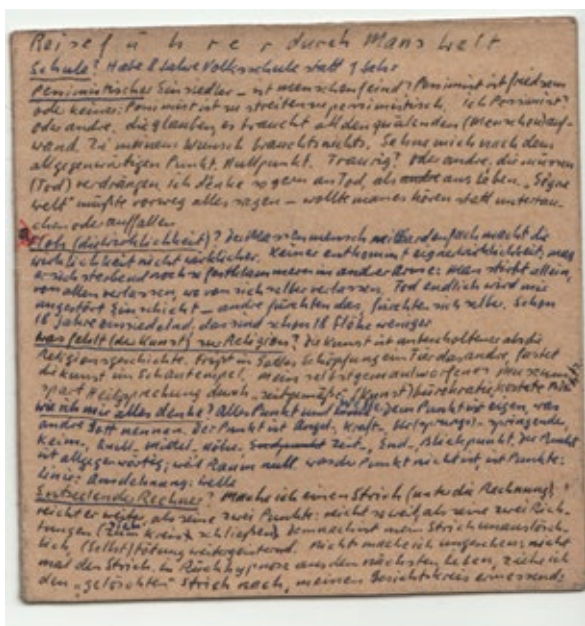 Reiseführer durch Mans Welt
Schule? Habe 8 Jahre Volksschule statt 9 Jahr
Pessimistischer Einsiedler – ist menschenfeind? Pessimist ist friedsam
oder keiner: Pessimist ist zu streiten zu pessimistisch. ich Pessimist?
oder andre, die glauben, es braucht all den quälenden (Menschen)auf-
wand. Zu meinem Wunsch brauchts nichts. Sehne mich nach dem
allgegenwärtigen Punkt, Nullpunkt. Traurig? oder andre, die müssen
(Tod) verdrängen, ich denke so gern an Tod, als andre ans Leben. „Sögne
welt" müßte vorweg alles sagen – wollte man es hören statt untertau-
chen oder auffallen
Floh (die Wirklichkeit)? Der Massenmensch milliardenfach macht die
wirklichkeit nicht wirklicher. Keiner entkommt eigner wirklichkeit, mag
er sich sterbend noch so festklammern in andrer Arme: Man stirbt allein,
von allen verlassen, wo von sich selber verlassen. Tod endlich wird mir
ungestört Einschicht – andre fürchten das, fürchten sich selber. Schon
18 Jahre einsiedelnd, das sind schon 18 Flöhe weniger
was fehlt (der Kunst) zur Religion? Die Kunst ist unterhaltener als die
Religionsgeschichte. Frißt in Gottes Schöpfung ein Tier das andre, fastet
die Kunst im Schautempel. Mein selbstgemaltworfenes Museum
spart Heilsprechung durch zeitgemäße (Kunst)bürokratie, kostete
wie ich mir alles denke? Alles Punkt und Dem Punkt ist eigen, was
andre Gott nennen. Der Punkt ist Angel-, Kraft-, Ur(sprungs)-, springende,
Keim-, Null-, Mittel-, Höhe-, Zeit-, End-, Blickpunkt. Der Punkt
ist allgegenwärtig, weil Raum null, wo der Punkt nicht ist, ist Punkte:
Linie: Ausdehnung: Welle
Rechner? Mache ich einen Strich (unter die Rechnung),
reicht er weiter, als seine zwei Punkte: reicht so weit, als seine zwei Rich-
tungen (zum Kreis) schließen. Demnach ist mein Strich unauslösch-
lich, (Selbst)tötung weitergeisternd. Nicht mache ich ungeschen: nicht
mal den Strich. In Rückhypnose aus dem nächsten Leben, ziehe ich
den „gelöschten" Strich nach, meinen Gesichtskreis ermessend: